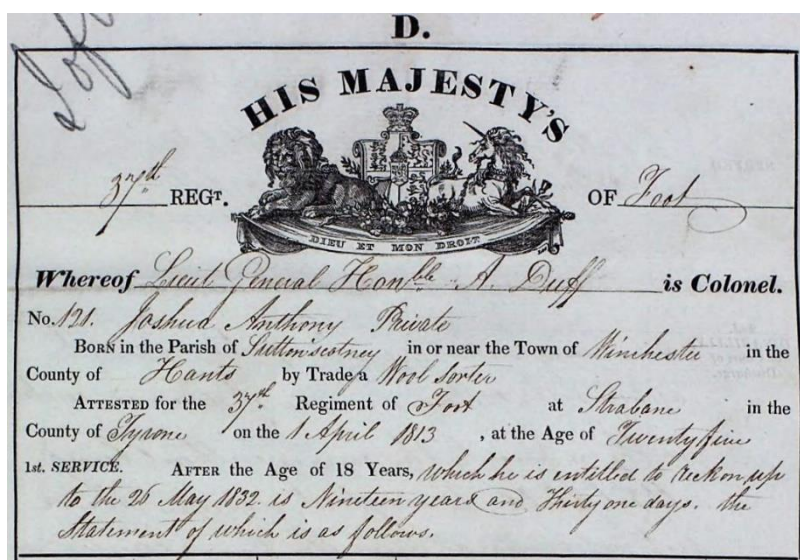 D.
HIS MAJESTY'S
37th REGT. OF Foot
DIEU ET MON DROIT
Whereof Lieut General Honble A. Duff is Colonel.
No. 121. Joshua Anthony Private
BORN in the Parish of Suttonscotney in or near the Town of Winchester in the
County of Hants by Trade a Wool sorter
ATTESTED for the 37th Regiment of Foot at Strabane in the
County of Tyrone on the 1 April 1813, at the Age of Twenty five
1st. SERVICE. AFTER the Age of 18 Years, which he is entitled to reckon up
to the 26 May 1832 is Nineteen years and Thirty one days. the
Statement of which is as follows.